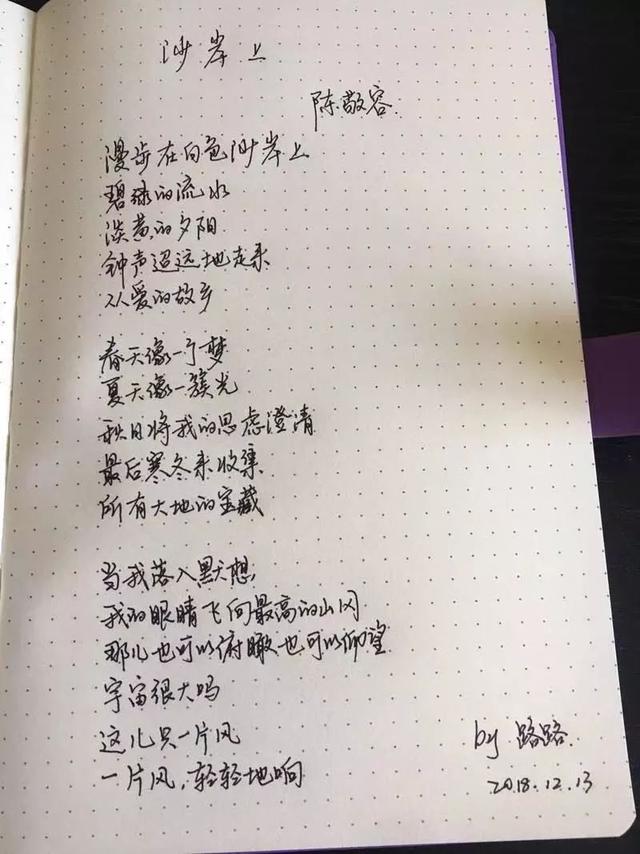 沙岸上
陈敬容
漫步在白色沙岸上
碧绿的流水
淡黄的夕阳
钟声迢远地走来
从爱的故乡
春天像一个梦
夏天像一簇光
秋日将我的思虑澄清
最后寒冬来收集
所有大地的宝藏
当我落入默想,
我的眼睛飞向最高的山冈
那儿也可以俯瞰也可以仰望
宇宙很大吗
这儿只一片风
一片风,轻轻地响
by 路路
2018.12.13